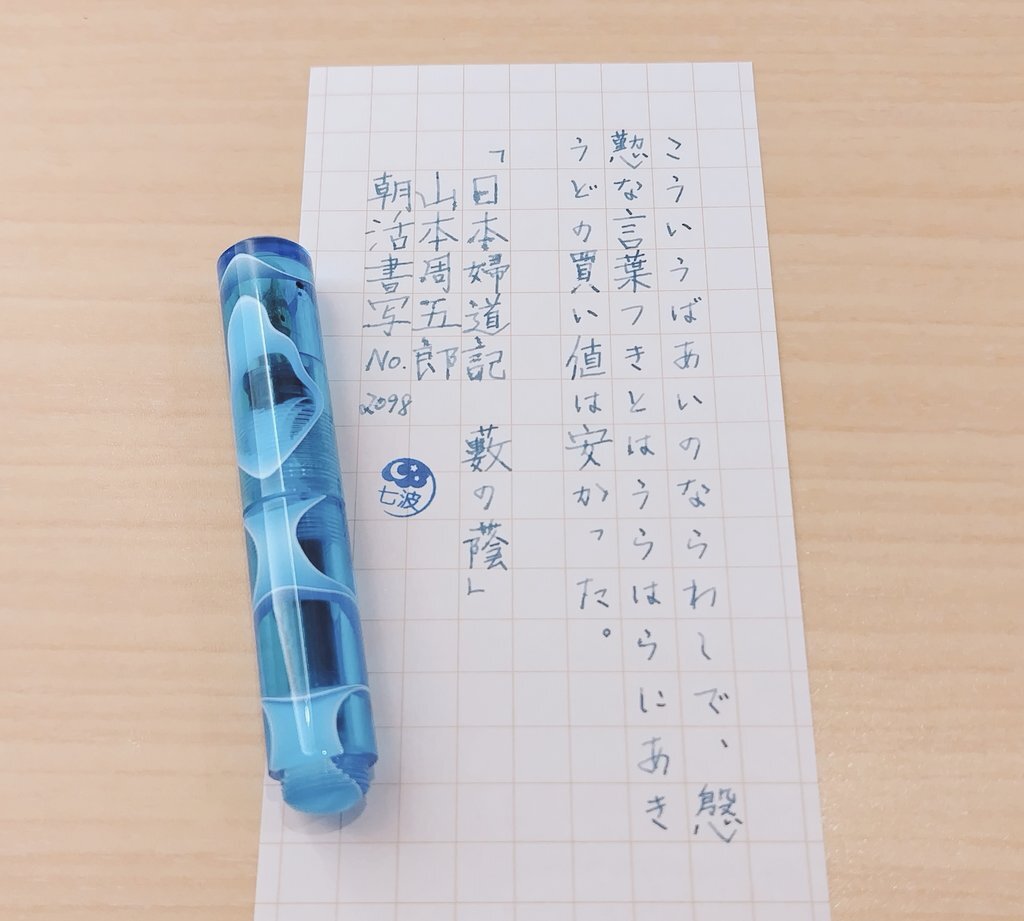 こういうばあいのならわしで、慇
懃な言葉つきとはうらはらにあき
うどの買い値は安かった。
「日本婦道記　藪の蔭」
山本周五郎
朝活書写No.2098
七波